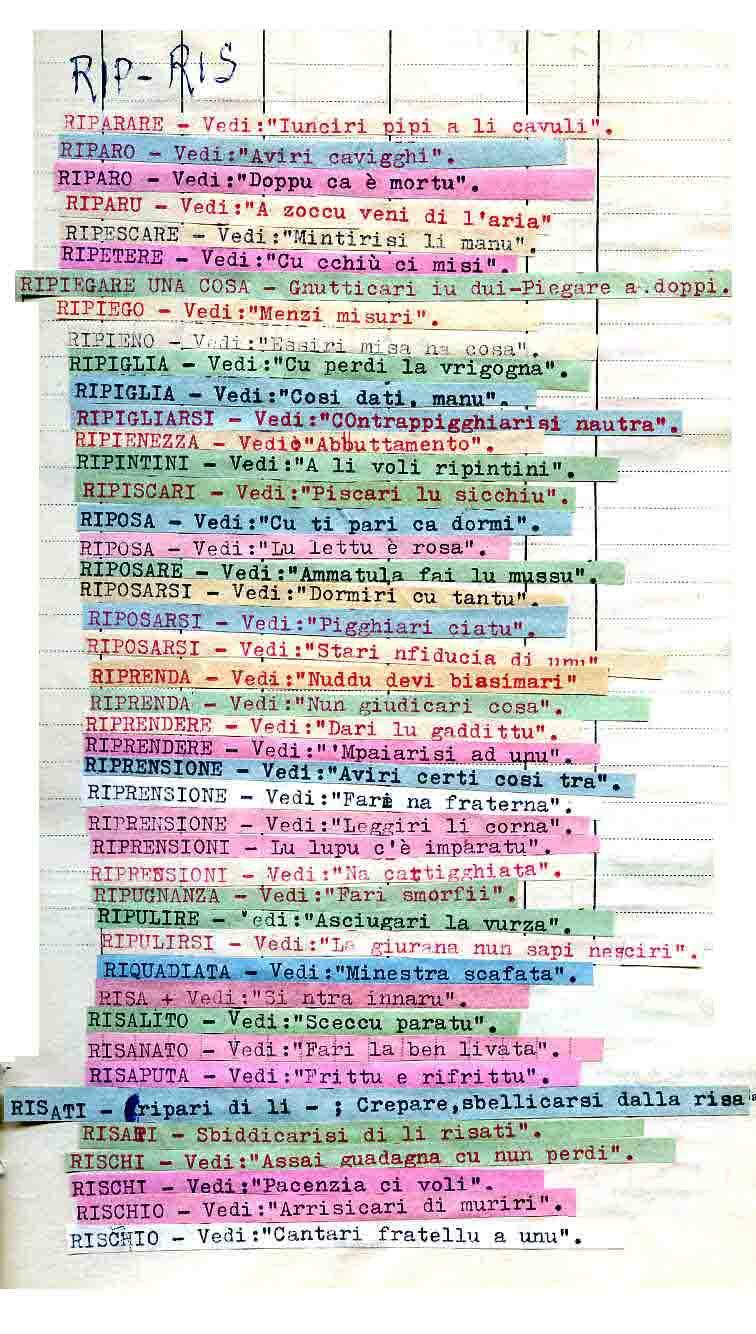 RIP-RIS
RIPARARE - Vedi:"Iunciri pipi a li cavuli".
RIPARO - Vedi:"Aviri cavigghi".
RIPARO - Vedi:"Doppu ca è mortu".
RIPARU - Vedi:"A zoccu veni di l'aria"
RIPESCARE - Vedi:"Mintirisi li manu".
RIPETERE - Vedi:"Cu cchiù ci misi".
RIPIEGARE UNA COSA - Gnutticari iu dui-Piegare a.doppi.
RIPIEGO - Vedi:"Menzi misuri".
RIPIENO - Vedi:"Essiri misa na cosa".
RIPIGLIA - Vedi:"Cu perdi la vrigogna".
RIPIGLIA - Vedi:"Cosi dati, manu".
RIPIGLIARSI - Vedi:"COntrappigghiarisi nautra".
RIPIENEZZA - Vedi:"Abbuttamento".
RIPINTINI - Vedi:"A li voli ripintini".
RIPISCARI - Vedi:"Piscari lu sicchiu".
RIPOSA - Vedi:"Cu ti pari ca dormi".
RIPOSA - Vedi:"Lu lettu è rosa".
RIPOSARE - Vedi:"Ammatula fai lu mussu".
RIPOSARSI - Vedi:"Dormiri cu tantu".
RIPOSARSI - Vedi:"Pigghiari ciatu".
RIPOSARSI - Vedi:"Stari nfiducia di unu"
RIPRENDA - Vedi:"Nuddu devi biasimari"
RIPRENDA - Vedi:"Nun giudicari cosa".
RIPRENDERE - Vedi:"Dari lu gaddittu".
RIPRENDERE - Vedi:"'Mpaiarisi ad unu".
RIPRENSIONE - Vedi:"Aviri certi cosi tra".
RIPRENSIONE - Vedi:"Fari na fraterna".
RIPRENSIONE - Vedi:"Leggiri li corna".
RIPRENSIONI - Lu lupu c'è imparatu".
RIPRENSIONI - Vedi:"Na cattigghiata".
RIPUGNANZA - Vedi:"Fari smorfii".
RIPULIRE - Vedi:"Asciugari la vurza".
RIPULIRSI - Vedi:"La giurana nun sapi nesciri".
RIQUADIATA - Vedi:"Minestra scafata".
RISA + Vedi:"Si ntra innaru".
RISALITO - Vedi:"Sceccu paratu".
RISANATO - Vedi:"Fari la ben livata".
RISAPUTA - Vedi:"Frittu e rifrittu".
RISATI - Cripari di li - ; Crepare,sbellicarsi dalla risa
RISATI - Sbiddicarisi di li risati".
RISCHI - Vedi:"Assai guadagna cu nun perdi".
RISCHI - Vedi:"Pacenzia ci voli".
RISCHIO - Vedi:"Arrisicari di muriri".
RISCHIO - Vedi:"Cantari fratellu a unu".